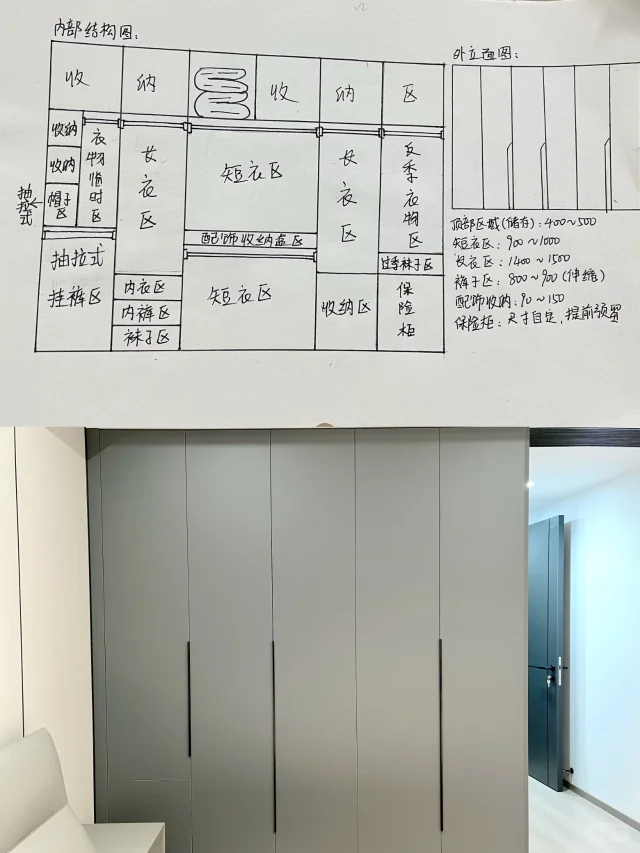 内部结构图:
收 纳 收 纳 区
收纳
收纳
帽子区
抽拉式
衣物临时区
长衣区
短衣区
长衣区
反季衣物区
配饰收纳盒区
抽拉式
挂裤区
内衣区
内裤区
袜子区
短衣区
收纳区
过季袜子区
保险柜
外立面图:
顶部区域(储存):400~500
短衣区:900~1000
长衣区:1400~1500
裤子区:800~900(伸缩)
配饰收纳:90~150
保险柜:尺寸自定,提前预留